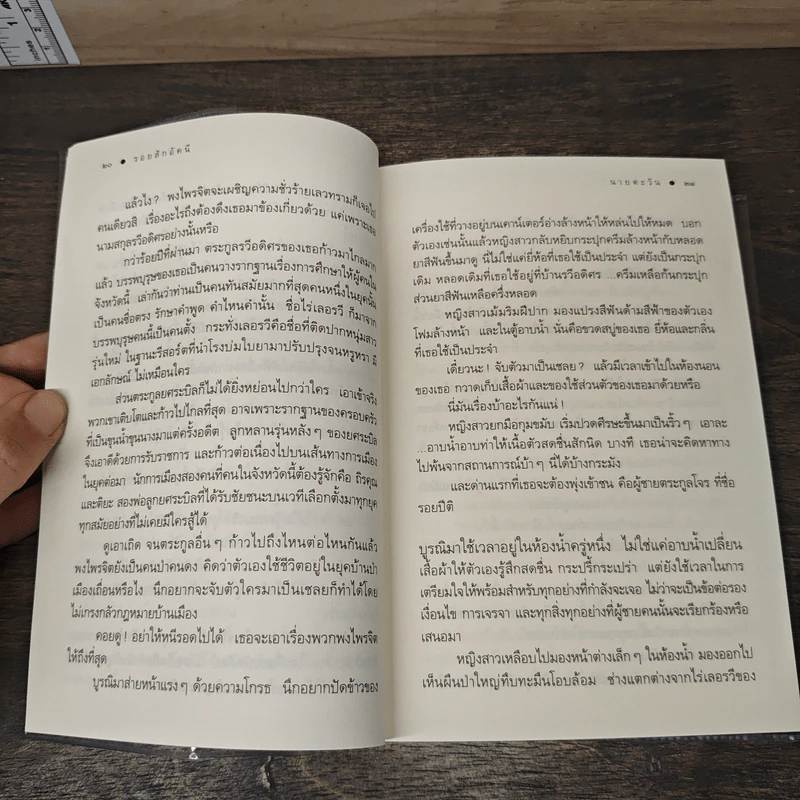 1
2
3
Inches
๒๐ ● รอยสักอัคนี
แล้วไง? พงไพรจิตจะเผชิญความชั่วร้ายเลวทรามก็เจอไป
คนเดียวสิ เรื่องอะไรถึงต้องดึงเธอมาข้องเกี่ยวด้วย แค่เพราะเธอ
นามสกุลรวีอดิศรอย่างนั้นหรือ
กว่าร้อยปีที่ผ่านมา ตระกูลรวีอดิศรของเธอก้าวมาไกลมาก
แล้ว บรรพบุรุษของเธอเป็นคนวางรากฐานเรื่องการศึกษาให้ผู้คนใน
จังหวัดนี้ เล่ากันว่าท่านเป็นคนทันสมัยมากที่สุดคนหนึ่งในยุคนั้น
เป็นคนซื่อตรง รักษาคำพูด คำไหนคำนั้น ชื่อไร่เลอรวี ก็มาจาก
บรรพบุรุษคนนี้เป็นคนตั้ง กระทั่งเลอรวีคือชื่อที่ติดปากหนุ่มสาว
รุ่นใหม่ ในฐานะรีสอร์ตที่นำโรงบ่มใบยามาปรับปรุงจนหรูหรา มี
เอกลักษณ์ ไม่เหมือนใคร
ส่วนตระกูลยศระบิลก็ไม่ได้ยิ่งหย่อนไปกว่าใคร เอาเข้าจริง
พวกเขาเติบโตและก้าวไปไกลที่สุด อาจเพราะรากฐานของครอบครัว
ที่เป็นขุนน้ำขุนนางมาแต่ครั้งอดีต ลูกหลานรุ่นหลังๆ ของยศระบิล
จึงเอาดีด้วยการรับราชการ และก้าวต่อเนื่องไปบนเส้นทางการเมือง
ในยุคต่อมา นักการเมืองสองคนที่คนในจังหวัดนี้ต้องรู้จักคือ ถิรคุณ
และติยะ สองพ่อลูกยศระบิลที่ได้รับชัยชนะบนเวทีเลือกตั้งมาทุกยุค
ทุกสมัยอย่างที่ไม่เคยมีใครสู้ได้
ดูเอาเถิด จนตระกูลอื่นๆ ก้าวไปถึงไหนต่อไหนกันแล้ว
พงไพรจิตยังเป็นคนป่าคนดง คิดว่าตัวเองใช้ชีวิตอยู่ในยุคบ้านป่า
เมืองเถื่อนหรือไง นึกอยากจะจับตัวใครมาเป็นเชลยก็ทำได้โดย
ไม่เกรงกลัวกฎหมายบ้านเมือง
คอยดู! อย่าให้หนีรอดไปได้ เธอจะเอาเรื่องพวกพงไพรจิต
ให้ถึงที่สุด
บูรณิมาส่ายหน้าแรงๆ ด้วยความโกรธ นึกอยากปัดข้าวของ
นายตะวัน ● ๒๑
เครื่องใช้ที่วางอยู่บนเคาน์เตอร์อ่างล้างหน้าให้หล่นไปให้หมด บอก
ตัวเองเช่นนั้นแล้วหญิงสาวกลับหยิบกระปุกครีมล้างหน้ากับหลอด
ยาสีฟันขึ้นมาดู นี่ไม่ใช่แค่ยี่ห้อที่เธอใช้เป็นประจำ แต่ยังเป็นกระปุก
เดิม หลอดเดิมที่เธอใช้อยู่ที่บ้านรวีอดิศร ...ครีมเหลือก้นกระปุก
ส่วนยาสีฟันเหลือครึ่งหลอด
หญิงสาวเม้มริมฝีปาก มองแปรงสีฟันด้ามสีฟ้าของตัวเอง
โฟมล้างหน้า และในตู้อาบน้ำ นั่นคือขวดสบู่ของเธอ ยี่ห้อและกลิ่น
ที่เธอใช้เป็นประจำ
เดี๋ยวนะ! จับตัวมาเป็นเชลย? แล้วมีเวลาเข้าไปในห้องนอน
ของเธอ กวาดเก็บเสื้อผ้าและของใช้ส่วนตัวของเธอมาด้วยหรือ
นี่มันเรื่องบ้าอะไรกันแน่!
หญิงสาวยกมือกุมขมับ เริ่มปวดศีรษะขึ้นมาเป็นริ้วๆ เอาละ
...อาบน้ำอาบท่าให้เนื้อตัวสดชื่นสักนิด บางที เธอน่าจะคิดหาทาง
ไปพ้นจากสถานการณ์บ้าๆ นี่ได้บ้างกระมัง
และด่านแรกที่เธอจะต้องพุ่งเข้าชน คือผู้ชายตระกูลโจร ที่ชื่อ
รอยปีติ
บูรณิมาใช้เวลาอยู่ในห้องน้ำครู่หนึ่ง ไม่ใช่แค่อาบน้ำเปลี่ยน
เสื้อผ้าให้ตัวเองรู้สึกสดชื่น กระปรี้กระเปร่า แต่ยังใช้เวลาในการ
เตรียมใจให้พร้อมสำหรับทุกอย่างที่กำลังจะเจอ ไม่ว่าจะเป็นข้อต่อรอง
เงื่อนไข การเจรจา และทุกสิ่งทุกอย่างที่ผู้ชายคนนั้นจะเรียกร้องหรือ
เสนอมา
หญิงสาวเหลือบไปมองหน้าต่างเล็กๆ ในห้องน้ำ มองออกไป
เห็นผืนป่าใหญ่ทึบทะมึนโอบล้อม ช่างแตกต่างจากไร่เลอรวีของ